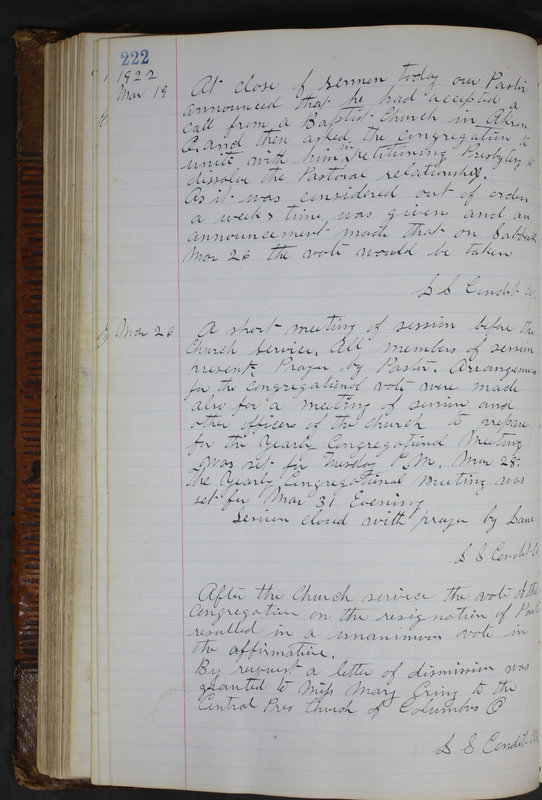 222
1922
Mar 19 At close of sermon today our Pastor
announced that he had accepted a
call from a Baptist Church in Akron
O. and then asked the congregation to
unite with him in petitioning Presbytery to
dissolve the Pastoral relationship.
As it was considered out of order
a weeks time was given and an
announcement made that on Sabbath
Mar 26 the vote would be taken
S S Condit
Mar 26 A short meeting of session before the
Church Service. All members of session
present. Prayer by Pastor. Arrangements
for the congregational vote were made
also for a meeting of session and
other officers of the church to prepare
for the Yearly Congregational Meeting
was set for Tuesday P.M. Mar 28.
the Yearly Congregational meeting was
set for Mar 31 Evening
Session closed with prayer by Same
S S Condit
After the Church service the vote of the
Congregation on the resignation of Pastor
resulted in a unanimous vote in
the affirmative.
By request a letter of dismission was
granted to Miss Mary to the
Central Pres Church of Columbus O
S S Condit